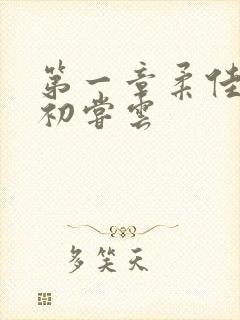 第一章柔佳
初尝云
多笑天